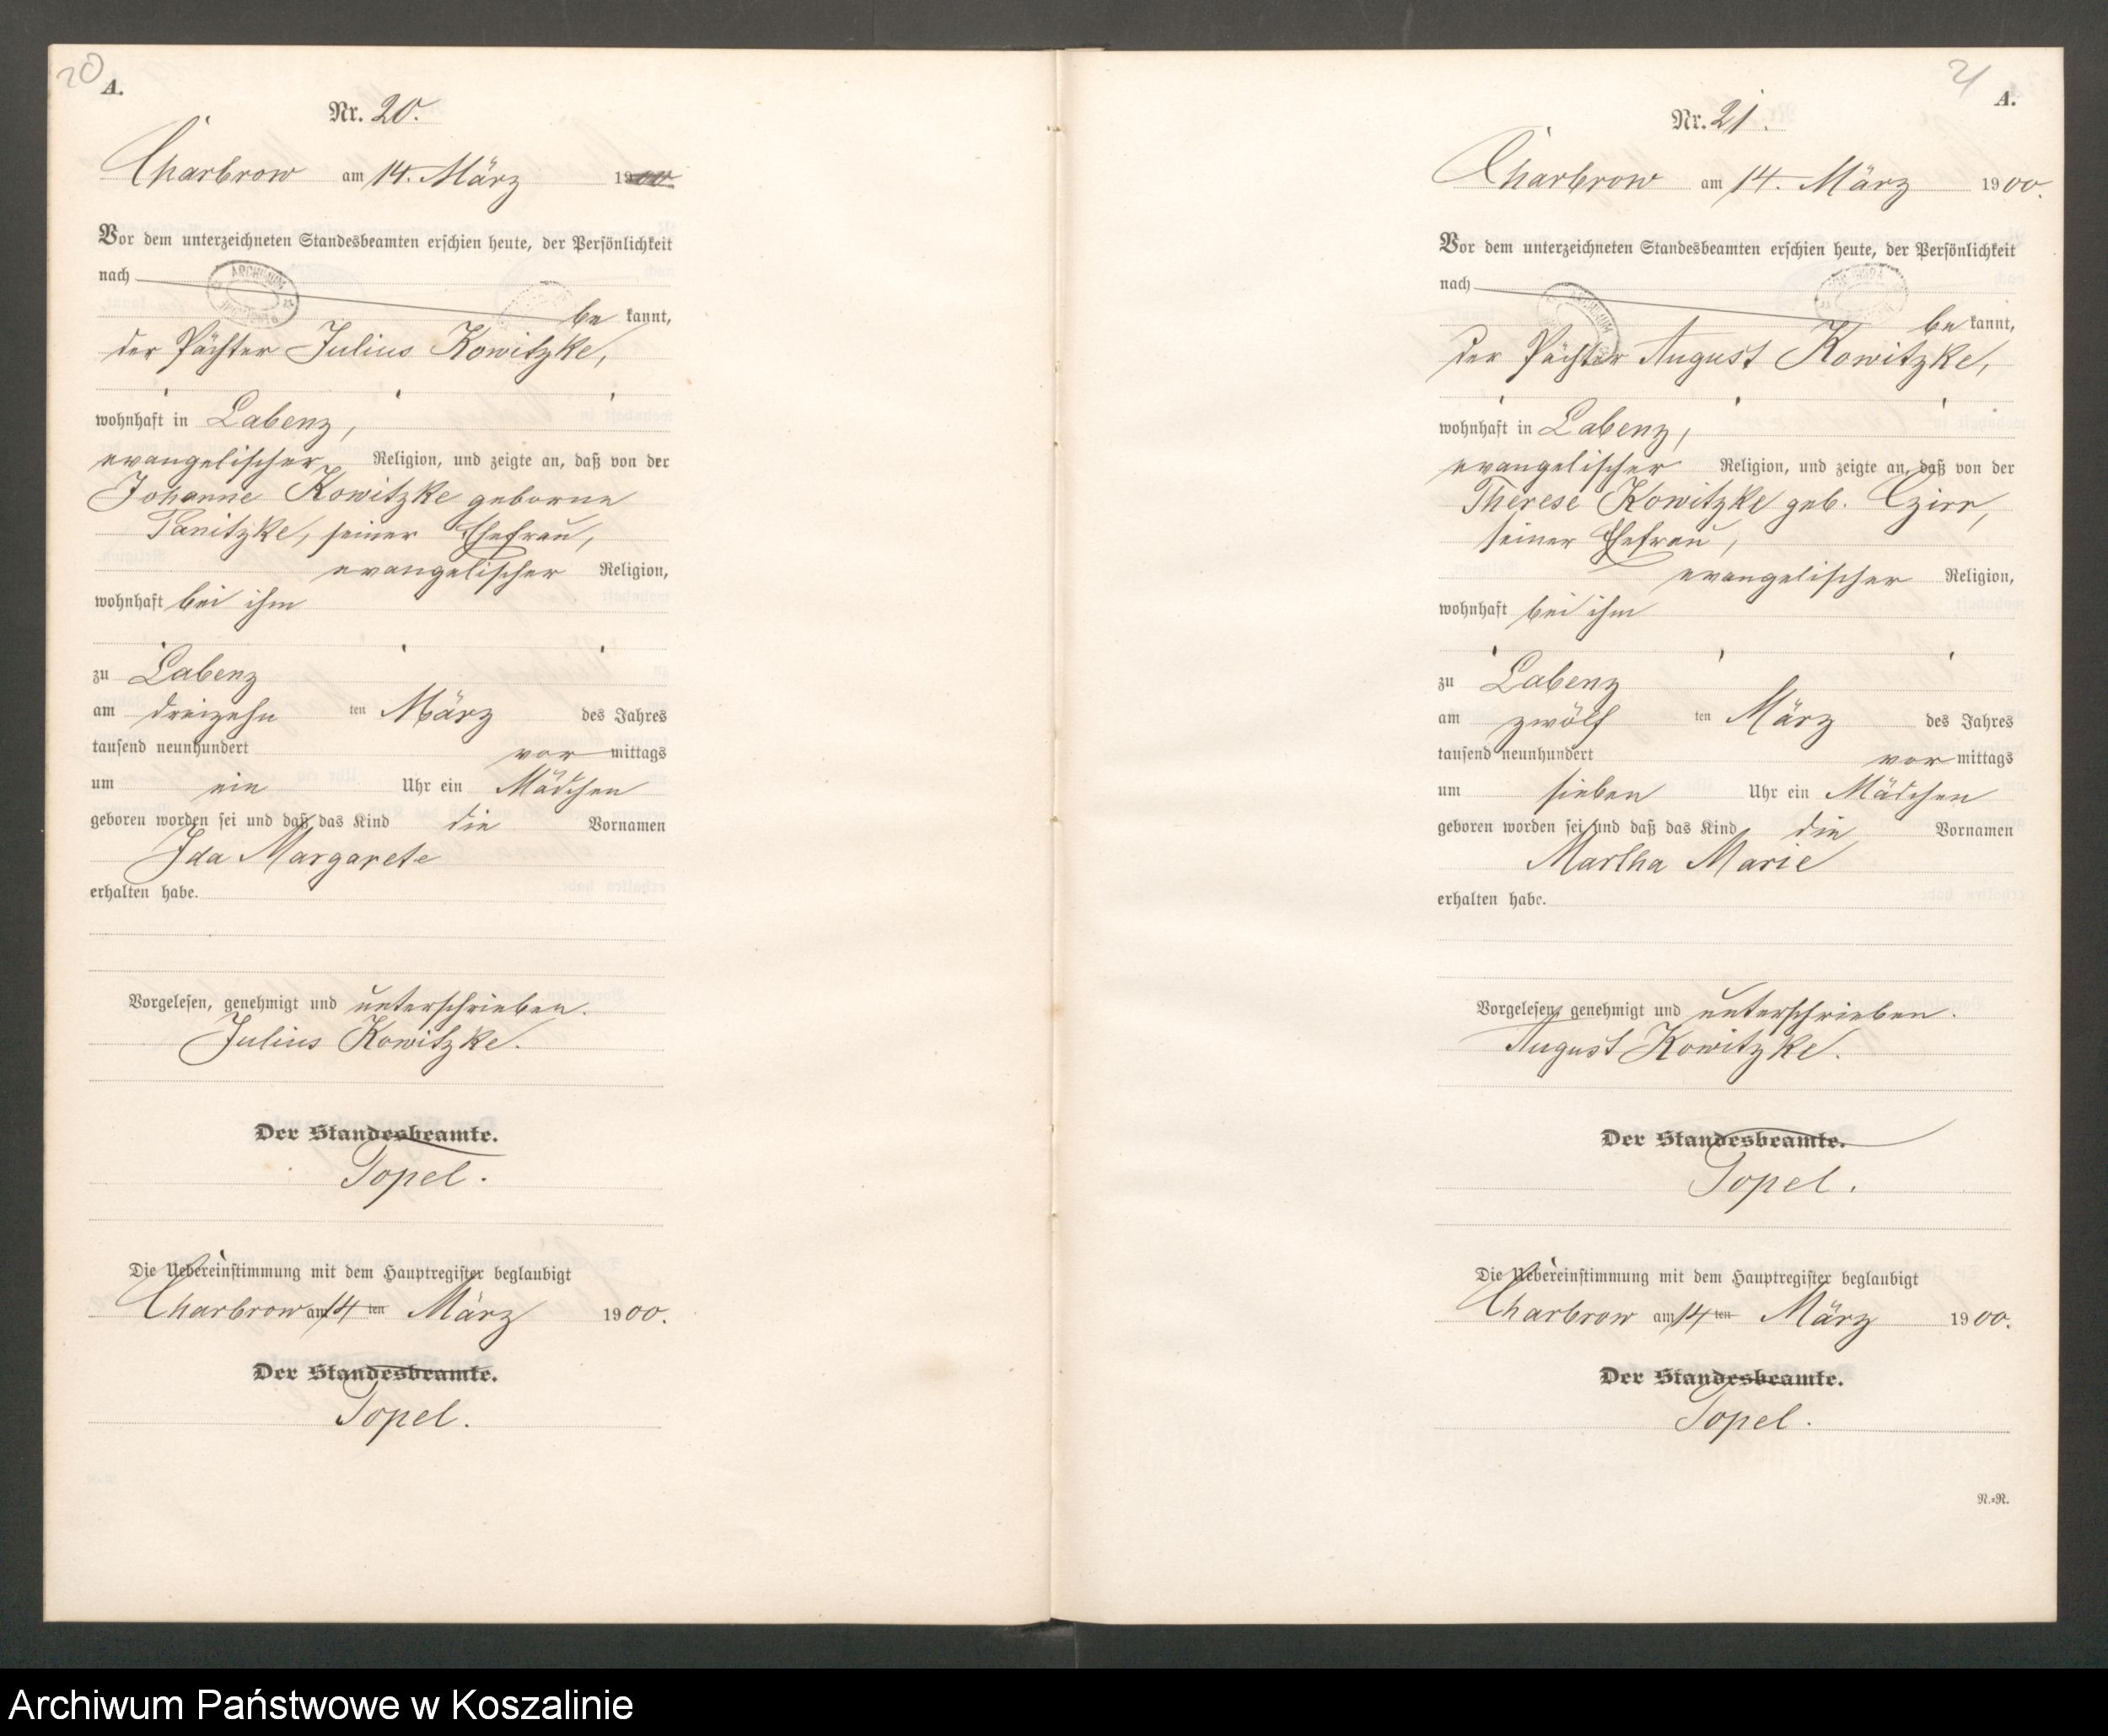 20
A.
Nr. 20.
Charbrow am 14. März 1900
Vor dem unterzeichneten Standesbeamten erschien heute, der Persönlichkeit
nach
be kannt,
der Pächter Julius Kowitzke,
wohnhaft in Labenz,
evangelischer Religion, und zeigte an, daß von der
Johanne Kowitzke geborne
Panitzke, seiner Ehefrau,
evangelischer Religion,
wohnhaft bei ihm
zu Labenz
am dreizehn ten März des Jahres
tausend neunhundert vor mittags
um ein Uhr ein Mädchen
geboren worden sei und daß das Kind die Vornamen
Ida Margarete
erhalten habe.
Vorgelesen, genehmigt und unterschrieben.
Julius Kowitzke.
Der Standesbeamte.
Topel.
Die Uebereinstimmung mit dem Hauptregister beglaubigt
Charbrow am 14 ten März 1900.
Der Standesbeamte.
Topel.
21
A.
Nr. 21.
Charbrow am 14. März 1900.
Vor dem unterzeichneten Standesbeamten erschien heute, der Persönlichkeit
nach
be kannt,
der Pächter August Kowitzke,
wohnhaft in Labenz,
evangelischer Religion, und zeigte an, daß von der
Therese Kowitzke geb. Czirr,
seiner Ehefrau,
evangelischer Religion,
wohnhaft bei ihm
zu Labenz
am zwölf ten März des Jahres
tausend neunhundert vor mittags
um sieben Uhr ein Mädchen
geboren worden sei und daß das Kind die Vornamen
Martha Marie
erhalten habe.
Vorgelesen, genehmigt und unterschrieben.
August Kowitzke.
Der Standesbeamte.
Topel.
Die Uebereinstimmung mit dem Hauptregister beglaubigt
Charbrow am 14 ten März 1900.
Der Standesbeamte.
Topel.
R.=R.
Archiwum Państwowe w Koszalinie